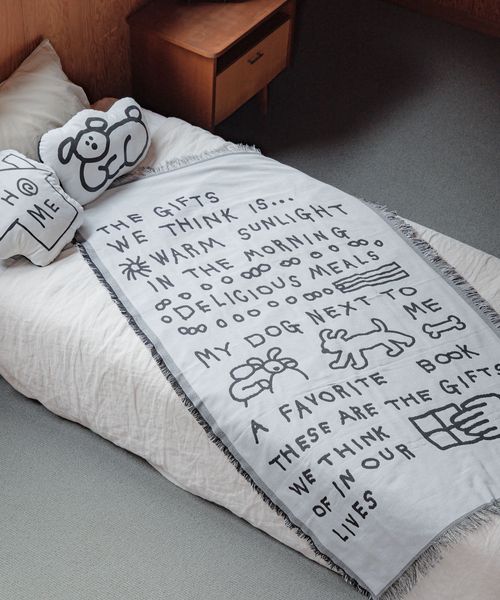 H@
ME
THE GIFTS
WE THINK IS...
WARM SUNLIGHT
IN THE MORNING
DELICIOUS MEALS
MY DOG NEXT TO
ME
A FAVORITE BOOK
THESE ARE THE GIFTS
WE THINK
OF IN OUR
LIVES